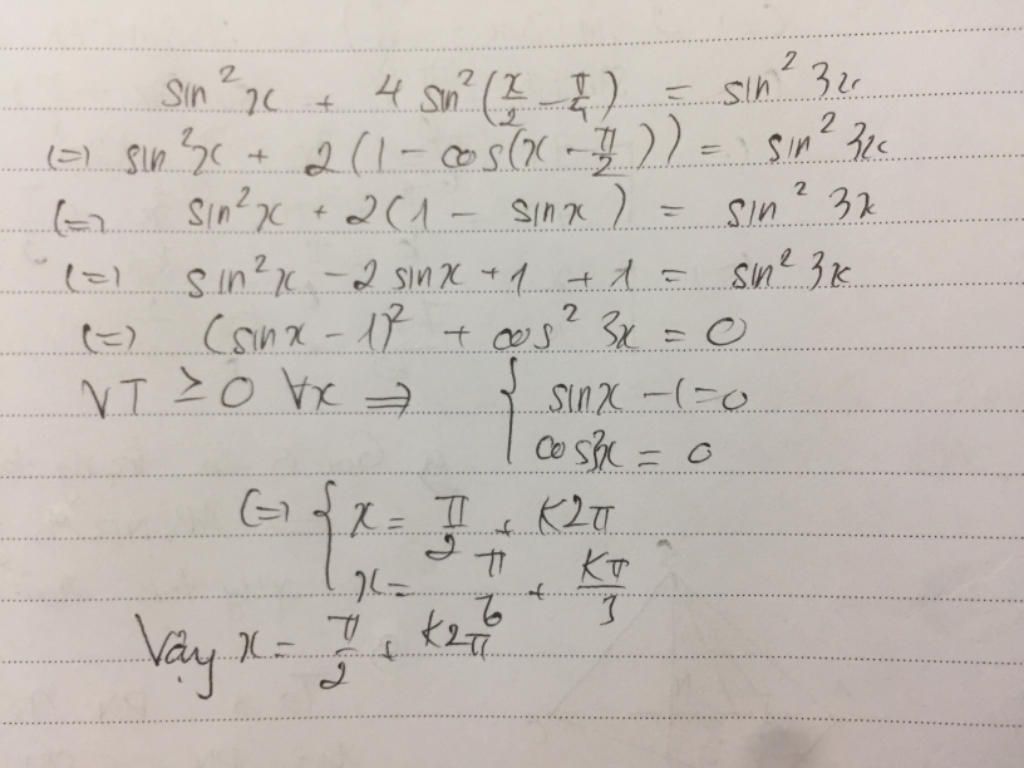 sin²x + 4 sin²(x/2 - π/4) = sin² 3x
(=) sin²x + 2(1 - cos(x - π/2)) = sin² 3x
(=) sin²x + 2(1 - sinx) = sin² 3x
(=) sin²x - 2 sinx + 1 + 1 = sin² 3x
(=) (sinx - 1)² + cos² 3x = 0
VT ≥ 0 ∀x ⇒ { sinx - 1 = 0
cos3x = 0
(=) { x = π/2 + K2π
x = π/6 + Kπ/3
Vậy x = π/2 + K2π